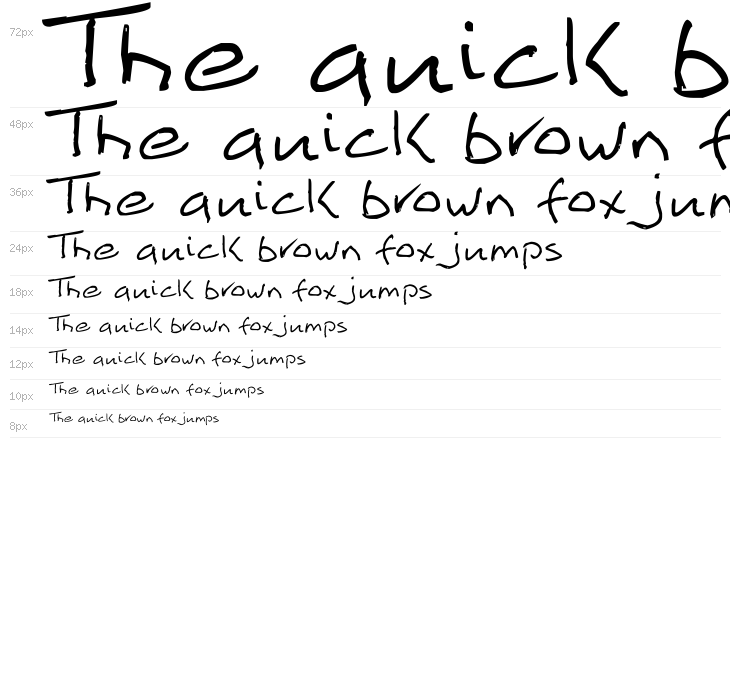 72px The quick b
48px The quick brown f
36px The quick brown fox jum
24px The quick brown fox jumps
18px The quick brown fox jumps
14px The quick brown fox jumps
12px The quick brown fox jumps
10px The quick brown fox jumps
8px The quick brown fox jumps